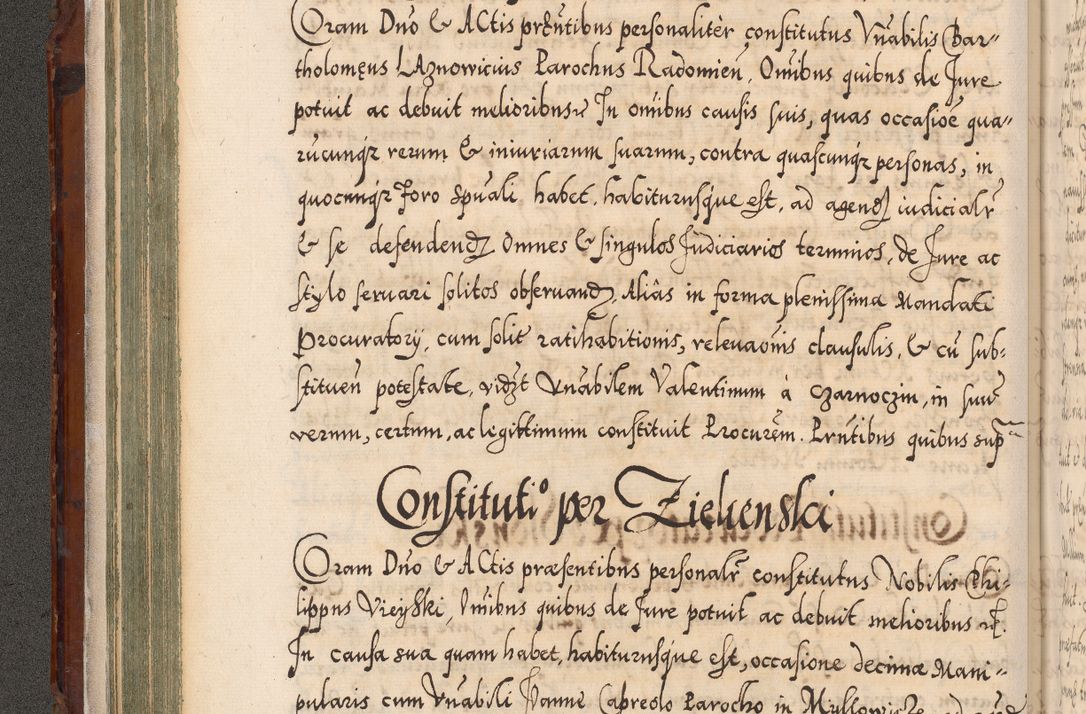 Coram Dnō & Actis prntibus personaliter constitutus Vnabilis Bar-
tholomęus Laznowicius Parochus Radomien, Omibus quibus de Jure
potuit ac debuit melioribus In omibus causis suis, quas occasioe qua-
rūcunqz rerum & iniuriarum suarum, contra quascunqz personas, in
quocunqz Foro spuali habet, habiturusque est, ad agend iudicialr
& se defendend Omnes & singulos Judiciarios terminos, de Jure ac
stylo seruari solitos obseruand, Aliās in forma plenissima Mandati
Procuratory, cum solit ratihabitionis, releuaōnis clausulis, & cū sub-
stituen potestate, vidzt Vnabilem Valentinum à Czarnoczin, in suū
verum, certum, ac legittimum constituit Procurem. Prntibus quibus sup
Constituti° per Zielienski
Coram Dnō & Actis præsentibus personalr constitutus Nobilis Phi-
lippus Vieyski, Omibus quibus de Jure potuit ac debuit melioribus
In causa sua quam habet, habiturusque est, occasione decimæ Mani-
pularis cum Vnabili Joanne Capreolo Parocho in